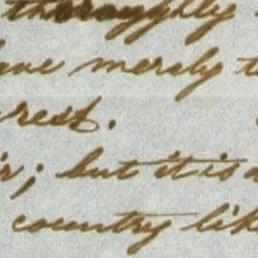 thoroughly
have merely t
rest.
ir; but it is a
country lik